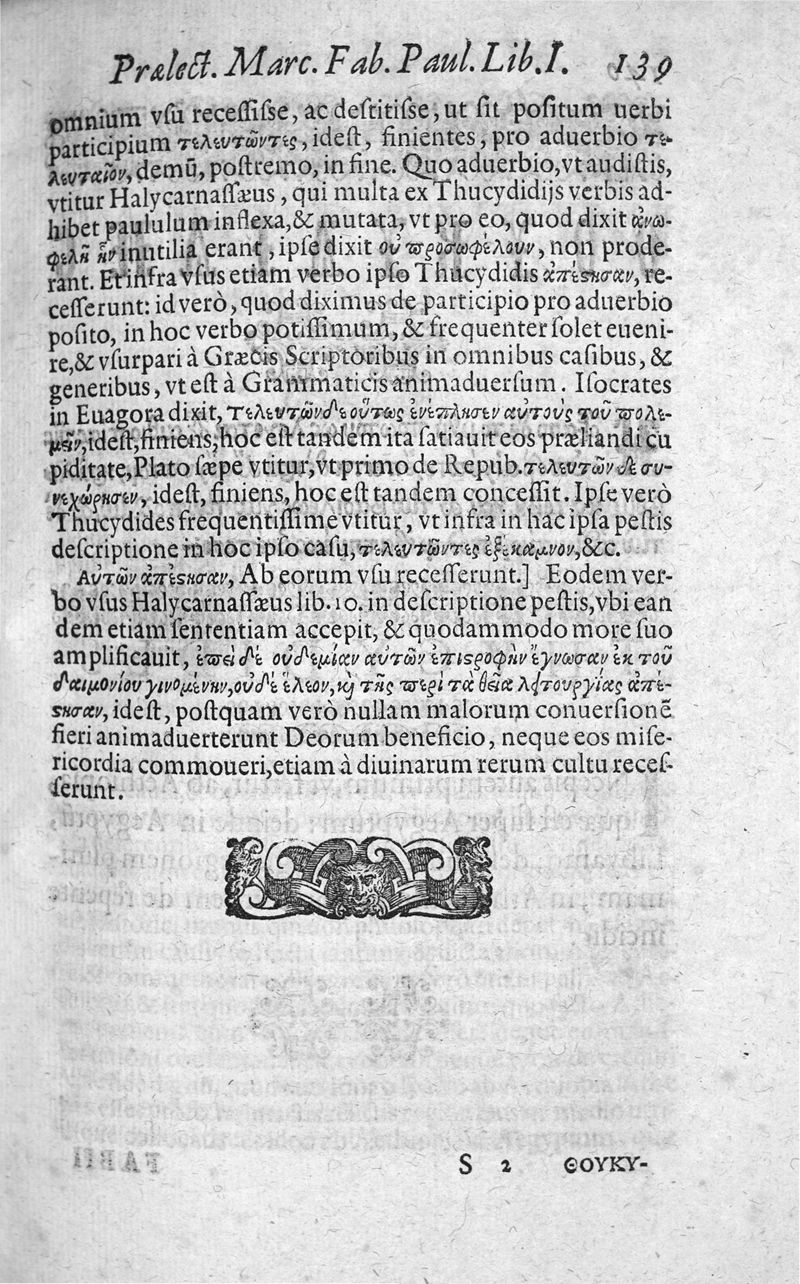 Prælect. Marc. Fab. Paul. Lib. I. 139
omnium vsu recessisse, ac destitisse, ut sit positum uerbi
participium τελευτῶντες, idest, finientes, pro aduerbio τε-
λευταῖον, demũ, postremo, in fine. Quo aduerbio, vt audistis,
vtitur Halycarnassæus, qui multa ex Thucydidijs verbis ad-
hibet paululum inflexa, & mutata, vt pro eo, quod dixit ἀνω-
φελῆ ἦν inutilia erant, ipse dixit οὐ προσωφέλουν, non prode-
rant. Et infra vsus etiam verbo ipso Thucydidis ἀπέστησαν, re-
cesserunt: id verò, quod diximus de participio pro aduerbio
posito, in hoc verbo potissimum, & frequenter solet eueni-
re, & vsurpari à Græcis Scriptoribus in omnibus casibus, &
generibus, vt est à Grammaticis animaduersum. Isocrates
in Euagora dixit, Τελευτῶν δὲ οὕτως ἐνέπλησεν αὐτοὺς τοῦ πολε-
μεῖν, idest, finiens, hoc est tandem ita satiauit eos præliandi cu
piditate, Plato sæpe vtitur, vt primo de Repub. τελευτῶν δὲ συ-
νεχώρησεν, idest, finiens, hoc est tandem concessit. Ipse verò
Thucydides frequentissime vtitur, vt infra in hac ipsa pestis
descriptione in hoc ipso casu, τελευτῶντες ἐξέκαμνον, &c.
Αὐτῶν ἀπέστησαν, Ab eorum vsu recesserunt.] Eodem ver-
bo vsus Halycarnassæus lib. 10. in descriptione pestis, vbi ean
dem etiam sententiam accepit, & quodammodo more suo
amplificauit, ἐπεὶ δὲ οὐδεμίαν αὐτῶν ἐπιστροφὴν ἔγνωσαν ἐκ τοῦ
δαιμονίου γινομένην, οὐδὲ ἔλεον, καὶ τῆς περὶ τὰ θεῖα λειτουργίας ἀπέ-
στησαν, idest, postquam verò nullam malorum conuersionẽ
fieri animaduerterunt Deorum beneficio, neque eos mise-
ricordia commoueri, etiam à diuinarum rerum cultu reces-
serunt.
S 2 ΘΟΥΚΥ-